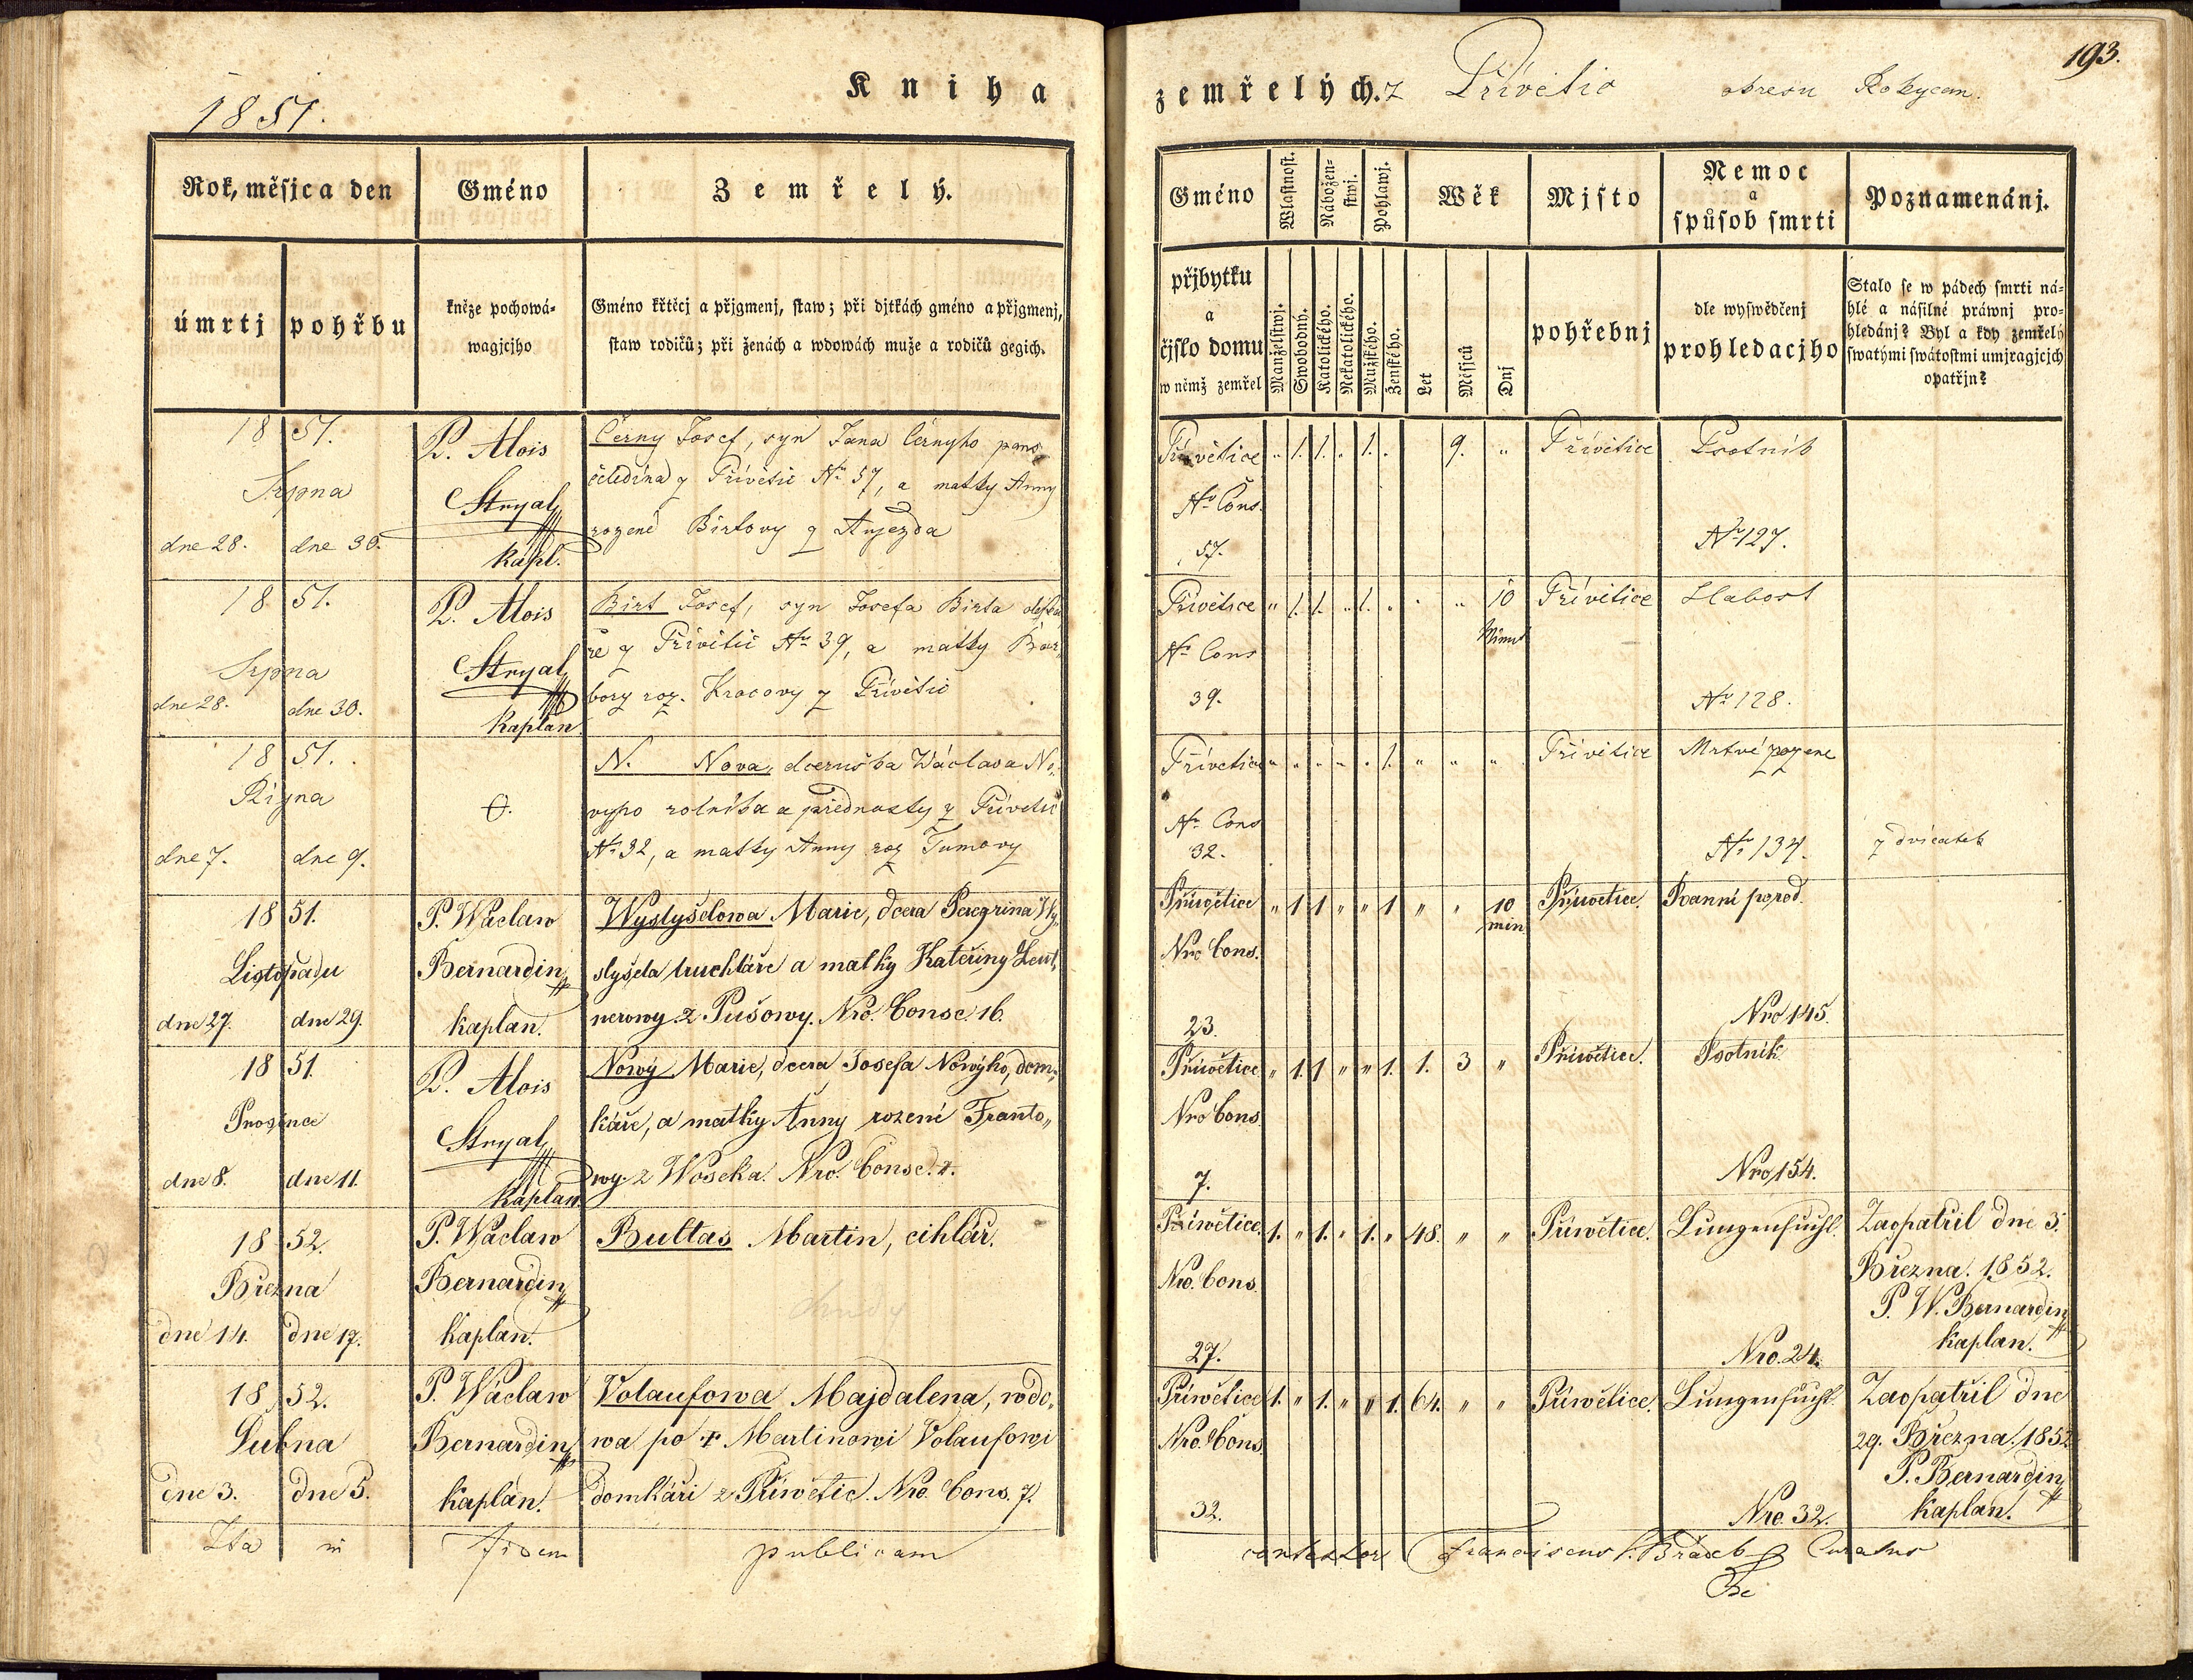 193.
1851.
Kniha
zemřelých. z Přívětic okresu Rokycan.
Rok, měsjca den
Gméno
Zemřelý.
úmrtj
pohřbu
kněze pochowá-
wagjcjho
Gméno křtěcj a přjgmenj, staw; při djtkách gméno a přjgmenj,
staw rodičů; při ženách a wdowách muže a rodičů gegich.
Gméno
Wlastnost.
Nábožen-
stwj.
Pohlawj.
Wěk
Mjsto
Nemoc
a
spůsob smrti
Poznamenánj.
přjbytku
a
čjslo domu
w němž zemřel
Manželstwj.
Swobodný.
Katolického.
Nekatolického.
Mužského.
Ženského.
Let
Měsjců
Dnj
pohřebnj
dle wyswědčenj
prohledacjho
Stalo se w pádech smrti ná-
hlé a násilné práwnj pro-
hledánj? Byl a kdy zemřelý
swatými swátostmi umjragjcjch
opatřjn?
1851.
Srpna
dne 28. dne 30.
P. Alois
Stryal
kapl.
Černy Josef, syn Jana Černyho pans.
čeledína z Přívětic No 57, a matky Anny
rozené Birtovy z Aujezda
Přívětice
No Cons.
57.
" 1. 1. " 1. " 9. "
Přívětice
Psotník
No 127.
1851.
Srpna
dne 28. dne 30.
P. Alois
Stryal
Kaplan
Birt Josef, syn Josefa Birta
ře z Přívětic No 39, a matky Bar,
bory roz. Kracovy z Přívětic
Přívětice
No Cons
39.
" 1. 1. " 1. " " " 10
Minut
Přívětice
Slabost
No 128.
1851.
Října
dne 7. dne 9.
O.
N. Nova, dceruška Wáclava No,
vyho rolníka a přednosty z Přívětic
No 32, a matky Anny roz Tumovy
Přívětice
No Cons
32.
" " " " " 1. " " "
Přívětice
Mrtvé rozene
No 134.
z dvícatek
1851.
Listopadu
dne 27. dne 29.
P. Wáclaw
Bernardin
kaplan.
Wyslyšelowa Marie, dcera Peregrina Wy,
slyšela truchláře a matky Kateřiny Lent,
nerowy z Pušowy. Nro. Consc 16.
Přiwětice
Nro Cons.
23.
" 1 1 " " 1 " " 10
min
Přiwětice.
Ranní porod.
Nro 145.
1851.
Prosince
dne 8. dne 11.
P. Alois
Stryal
Kaplan
Nowý Marie, dcera Josefa Nowýho, dom,
káře, a matky Anny rozené Franto,,
wy z Woseka. Nro. Consc. 7.
Přiwětice
Nro Cons.
7.
" 1. 1 " " 1. 1. 3 "
Přiwětice.
Psotník
Nro 154.
1852.
Března
dne 14. dne 17.
P. Wáclaw
Bernardin
kaplan.
Bultas Martin, cihlář.
Přiwětice
Nro. Cons.
27.
1. " 1. " 1. " 48. " "
Přiwětice.
Lungensucht.
Nro. 24.
Zaopatřil dne 3.
Března. 1852.
P. W. Bernardin
kaplan.
1852.
Dubna
dne 3. dne 5.
P. Wáclaw
Bernardin
kaplan.
Volaufowa Majdalena, wdo,
wa po + Martinowi Volaufowi
domkáři z Přiwětic. Nro. Cons. 7.
Přiwětice
Nro. Cons
32.
1. " 1. " " 1. 64. " "
Přiwětice.
Lungensucht.
Nro. 32.
Zaopatřil dne
29. Března. 1852
P. Bernardin
kaplan.
Ita in fidem publicam
Franciscus Curatus